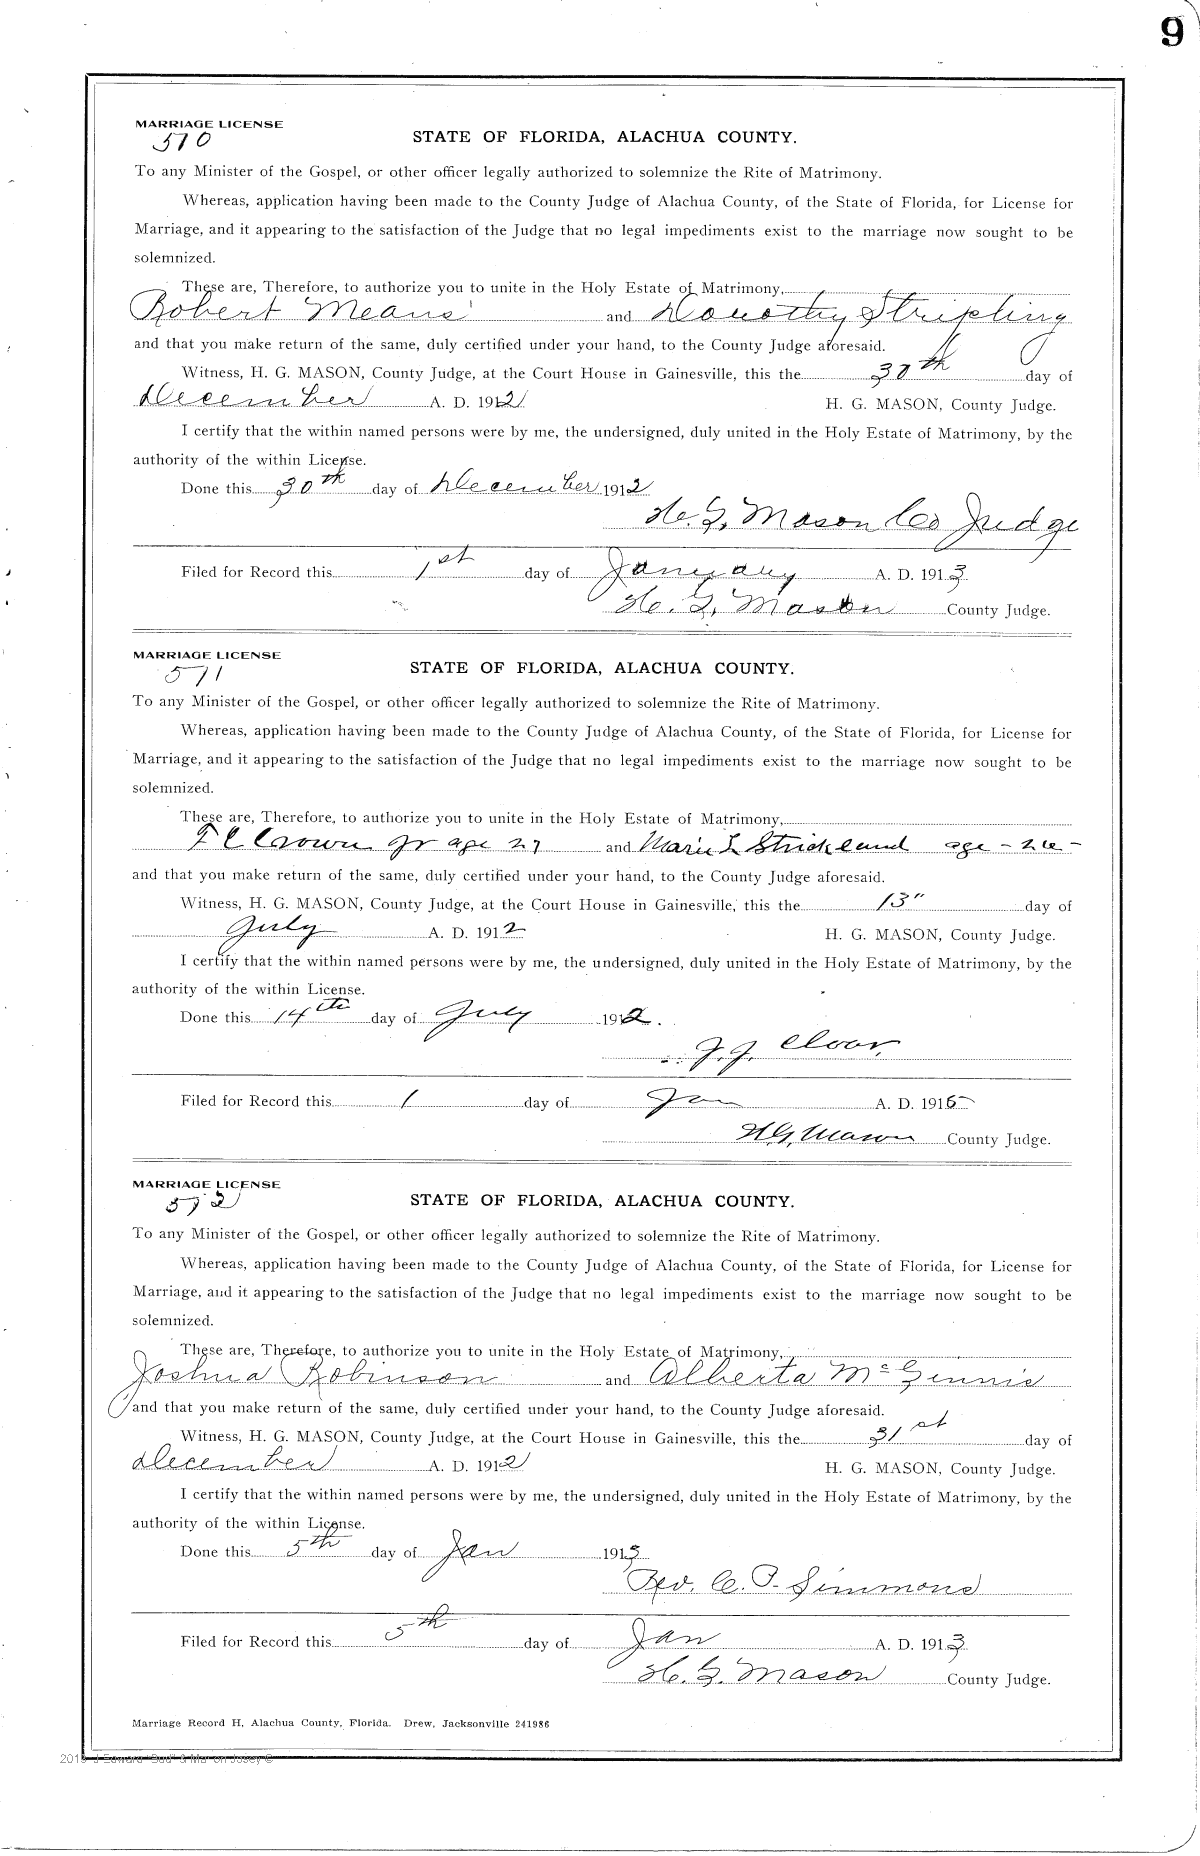 9
MARRIAGE LICENSE
570
STATE OF FLORIDA, ALACHUA COUNTY.
To any Minister of the Gospel, or other officer legally authorized to solemnize the Rite of Matrimony.
Whereas, application having been made to the County Judge of Alachua County, of the State of Florida, for License for
Marriage, and it appearing to the satisfaction of the Judge that no legal impediments exist to the marriage now sought to be
solemnized.
These are, Therefore, to authorize you to unite in the Holy Estate of Matrimony,
Robert Means and Dorothy Stripling
and that you make return of the same, duly certified under your hand, to the County Judge aforesaid.
Witness, H. G. MASON, County Judge, at the Court House in Gainesville, this the 30th day of
December A. D. 1912 H. G. MASON, County Judge.
I certify that the within named persons were by me, the undersigned, duly united in the Holy Estate of Matrimony, by the
authority of the within License.
Done this 30th day of December 1912
H. G. Mason Co Judge
Filed for Record this 1st day of January A. D. 1913
H. G. Mason County Judge.
MARRIAGE LICENSE
571
STATE OF FLORIDA, ALACHUA COUNTY.
To any Minister of the Gospel, or other officer legally authorized to solemnize the Rite of Matrimony.
Whereas, application having been made to the County Judge of Alachua County, of the State of Florida, for License for
Marriage, and it appearing to the satisfaction of the Judge that no legal impediments exist to the marriage now sought to be
solemnized.
These are, Therefore, to authorize you to unite in the Holy Estate of Matrimony,
Crown Jr age 27 and Marie L Strickland age
and that you make return of the same, duly certified under your hand, to the County Judge aforesaid.
Witness, H. G. MASON, County Judge, at the Court House in Gainesville, this the 13" day of
July A. D. 1912 H. G. MASON, County Judge.
I certify that the within named persons were by me, the undersigned, duly united in the Holy Estate of Matrimony, by the
authority of the within License.
Done this 14th day of July 1912.
J. J.
Filed for Record this 1 day of Jan A. D. 1915
H. G. Mason County Judge.
MARRIAGE LICENSE
572
STATE OF FLORIDA, ALACHUA COUNTY.
To any Minister of the Gospel, or other officer legally authorized to solemnize the Rite of Matrimony.
Whereas, application having been made to the County Judge of Alachua County, of the State of Florida, for License for
Marriage, and it appearing to the satisfaction of the Judge that no legal impediments exist to the marriage now sought to be
solemnized.
These are, Therefore, to authorize you to unite in the Holy Estate of Matrimony,
Joshua Robinson and Alberta McGinnis
and that you make return of the same, duly certified under your hand, to the County Judge aforesaid.
Witness, H. G. MASON, County Judge, at the Court House in Gainesville, this the 31st day of
December A. D. 1912 H. G. MASON, County Judge.
I certify that the within named persons were by me, the undersigned, duly united in the Holy Estate of Matrimony, by the
authority of the within License.
Done this 5th day of Jan 1913
Rev. C. P. Simmons
Filed for Record this 5th day of Jan A. D. 1913
H. G. Mason County Judge.
Marriage Record H, Alachua County, Florida. Drew, Jacksonville 241986